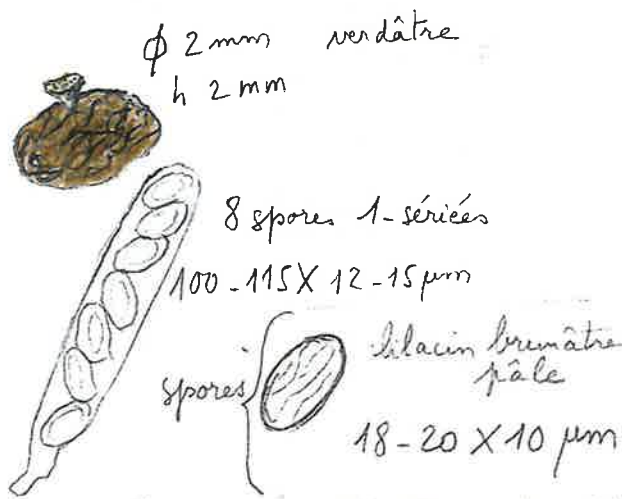 ϕ 2 mm verdâtre
h 2 mm
8 spores 1-sériées
100-115 X 12-15 µm
spores
lilacin brunâtre
pâle
18-20 X 10 µm